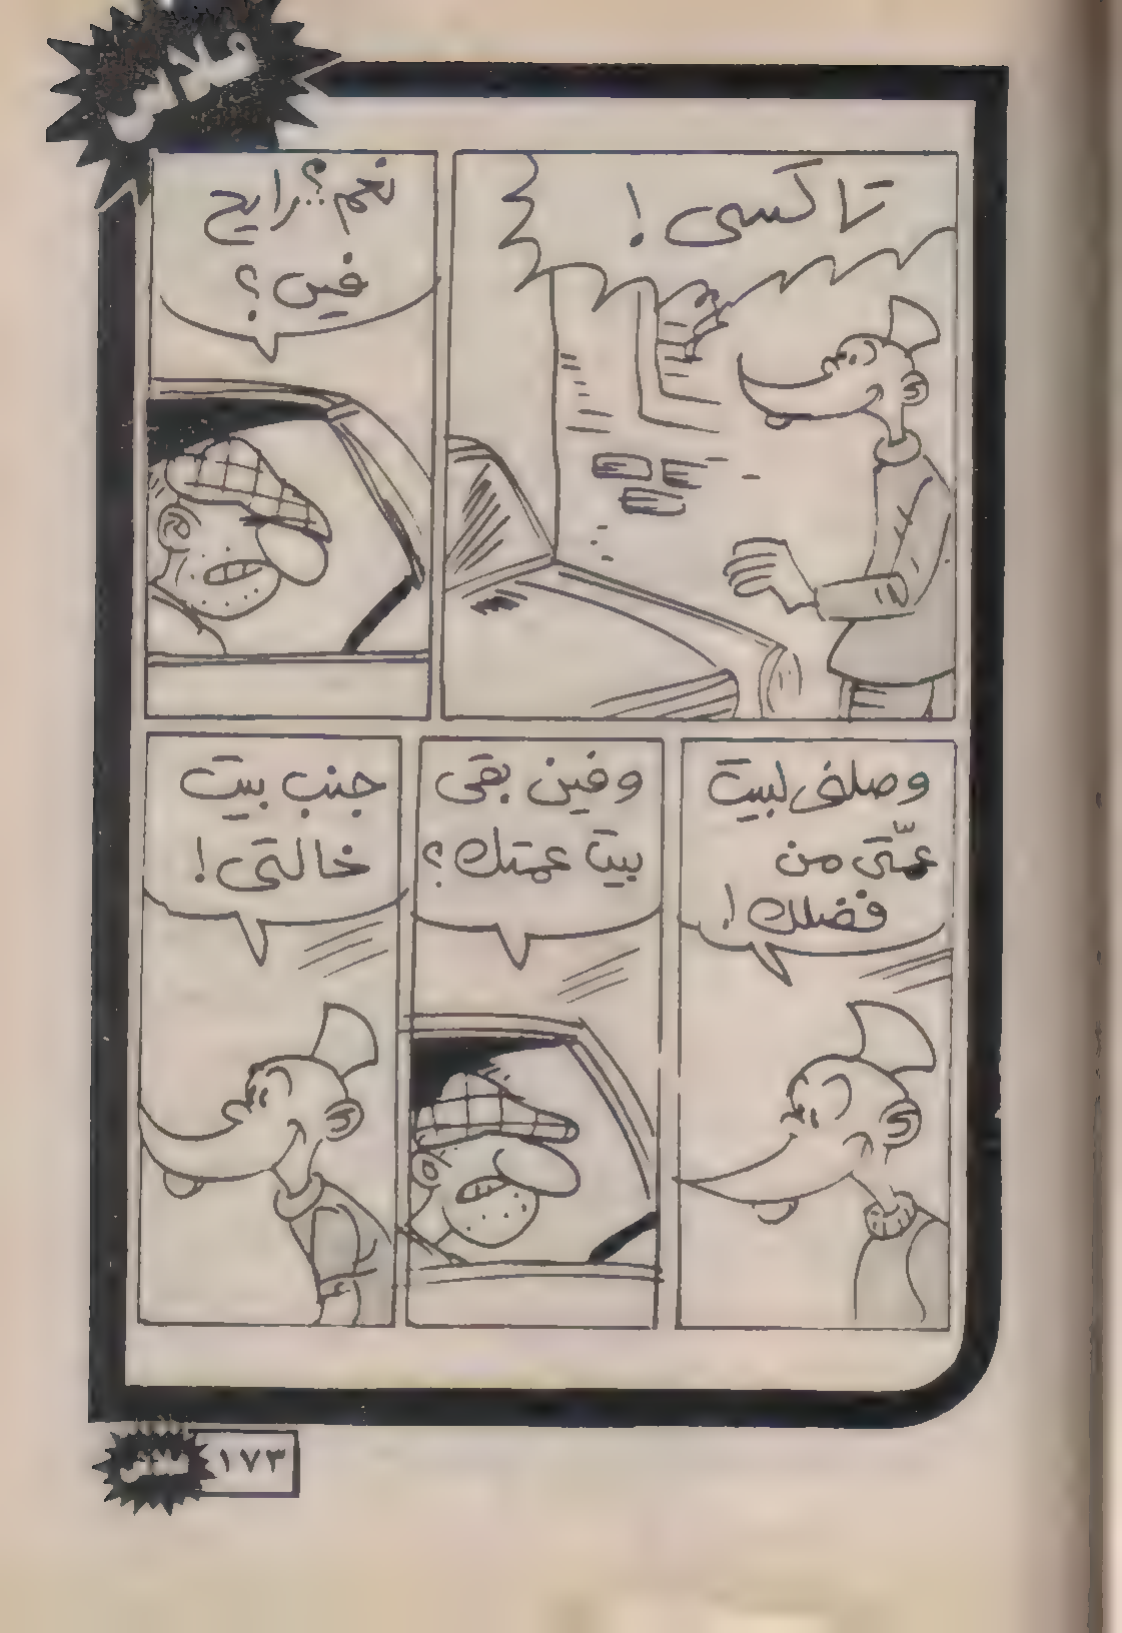 فلاش
تاكسى!
نعم؟.. رايح
فين؟
وصلنى لبيت
عمّتى من
فضلك!
وفين بقى
بيت عمتك؟
جنب بيت
خالتى!
فلاش ١٧٣